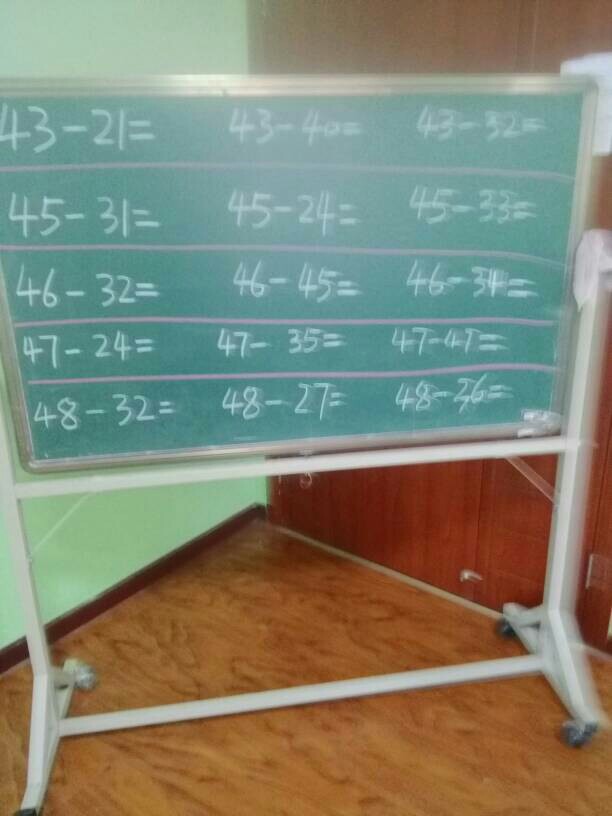 43-21= 43-40= 43-32=
45-31= 45-24= 45-33=
46-32= 46-45= 46-34=
47-24= 47-35= 47-47=
48-32= 48-27= 48-36=